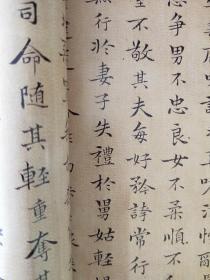 忿爭男不忠良女不柔順不
室不敬其夫每好矜誇常行
無行於妻子失禮於舅姑輕
司命隨其輕重奪其